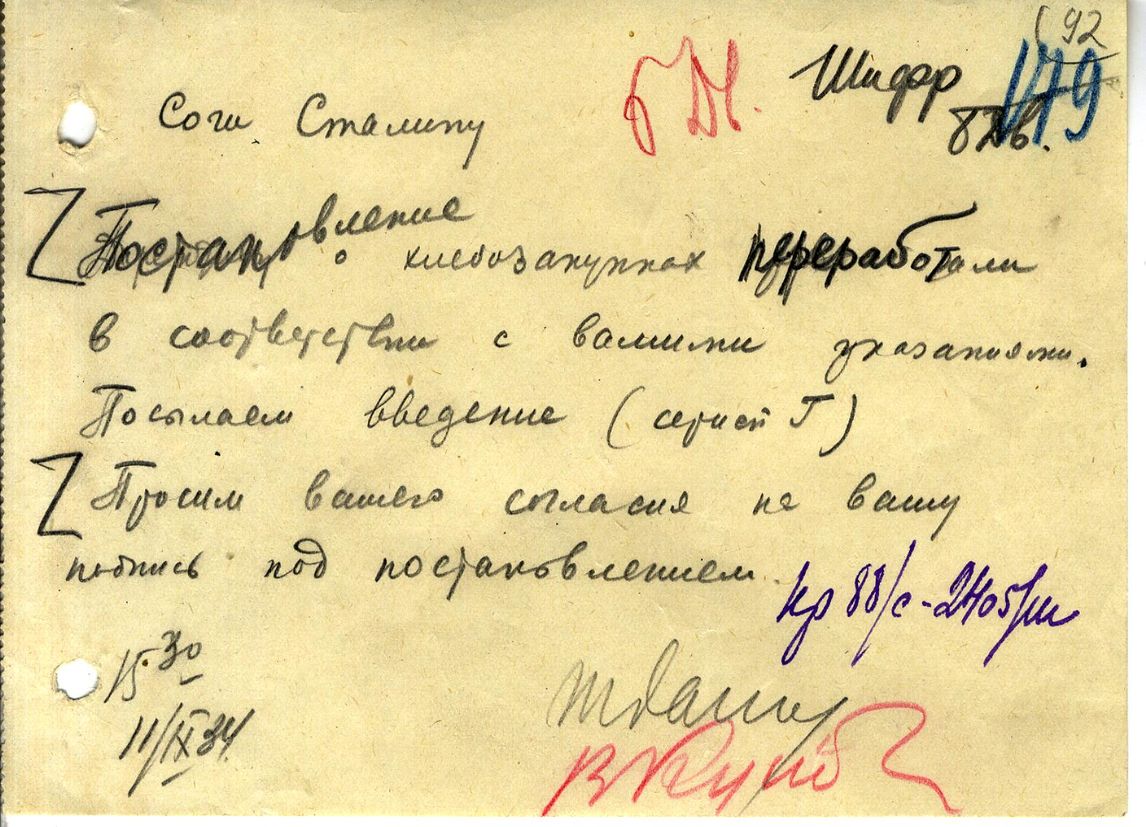 92
179
Шифр
Сочи Сталину
Постановление о хлебозакупках переработали
в соответствии с вашими указаниями.
Посылаем введение (серией Г)
Просим вашего согласия на вашу
подпись под постановлением.
15 30
11/IX 34.
Жданов
В Куйб